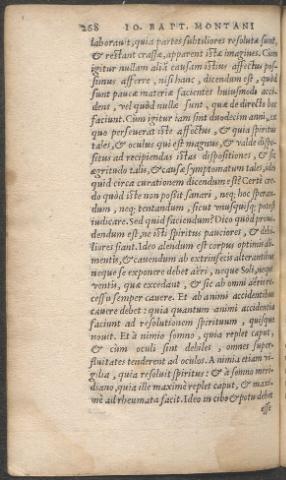 268 IO. BAPT. MONTANI
laborauit, quia partes subtiliores resolutæ sunt,
& restant crassæ, apparent istæ imagines. Cùm
igitur nullam aliã causam istius affectus pos-
simus afferre, nisi hanc, dicendum est, quòd
sunt paucæ materiæ facientes huiusmodi acci-
dens, vel quòd nullæ sunt, quæ de directo hoc
faciunt. Cùm igitur iam sint duodecim anni, ex
quo perseuerat iste affectus, & quia spiritus
tales, & oculus qui est magnus, & valde dispo-
situs ad recipiendas istas dispositiones, & sic
ægritudo talis, & causæ symptomatum tales, ideo
quid circa curationem dicendum est? Certè cre-
do quòd iste non possit sanari, neq; hoc speran-
dum, neq; tentandum, sicut unusquisq; potest
iudicare. Sed quid faciendum? Dico quòd proui-
dendum est, ne isti spiritus pauciores, & debi-
liores fiant. Ideo alendum est corpus optimis ali-
mentis, & cauendum ab extrinsecis alterantibus
neque se exponere debet aëri, neque Soli, neque
ventis, quæ excedant, & sic ab omni aëris ex-
cessu semper cauere. Et ab animi accidentibus
cauere debet: quia quantum animi accidentia
faciunt ad resolutionem spirituum, quisque
nouit. Et à nimio somno, quia replet caput,
& cùm oculi sint debiles, omnes super-
fluitates tenderent ad oculos. A nimia etiam vi-
gilia, quia resoluit spiritus: & à somno meri-
diano, quia ille maximè replet caput, & maxi-
mè ad rheumata facit. Ideo in cibo & potu debet
esse